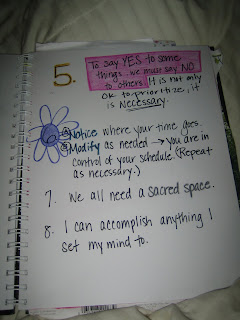 5. To say YES to some
things we must say NO
to others. It is not only
OK to prioritize, it
is Necessary.
① Notice where your time goes.
② Modify as needed → you are in
control of your schedule. (Repeat
as necessary.)
7. We all need a sacred space.
8. I can accomplish anything I
set my mind to.